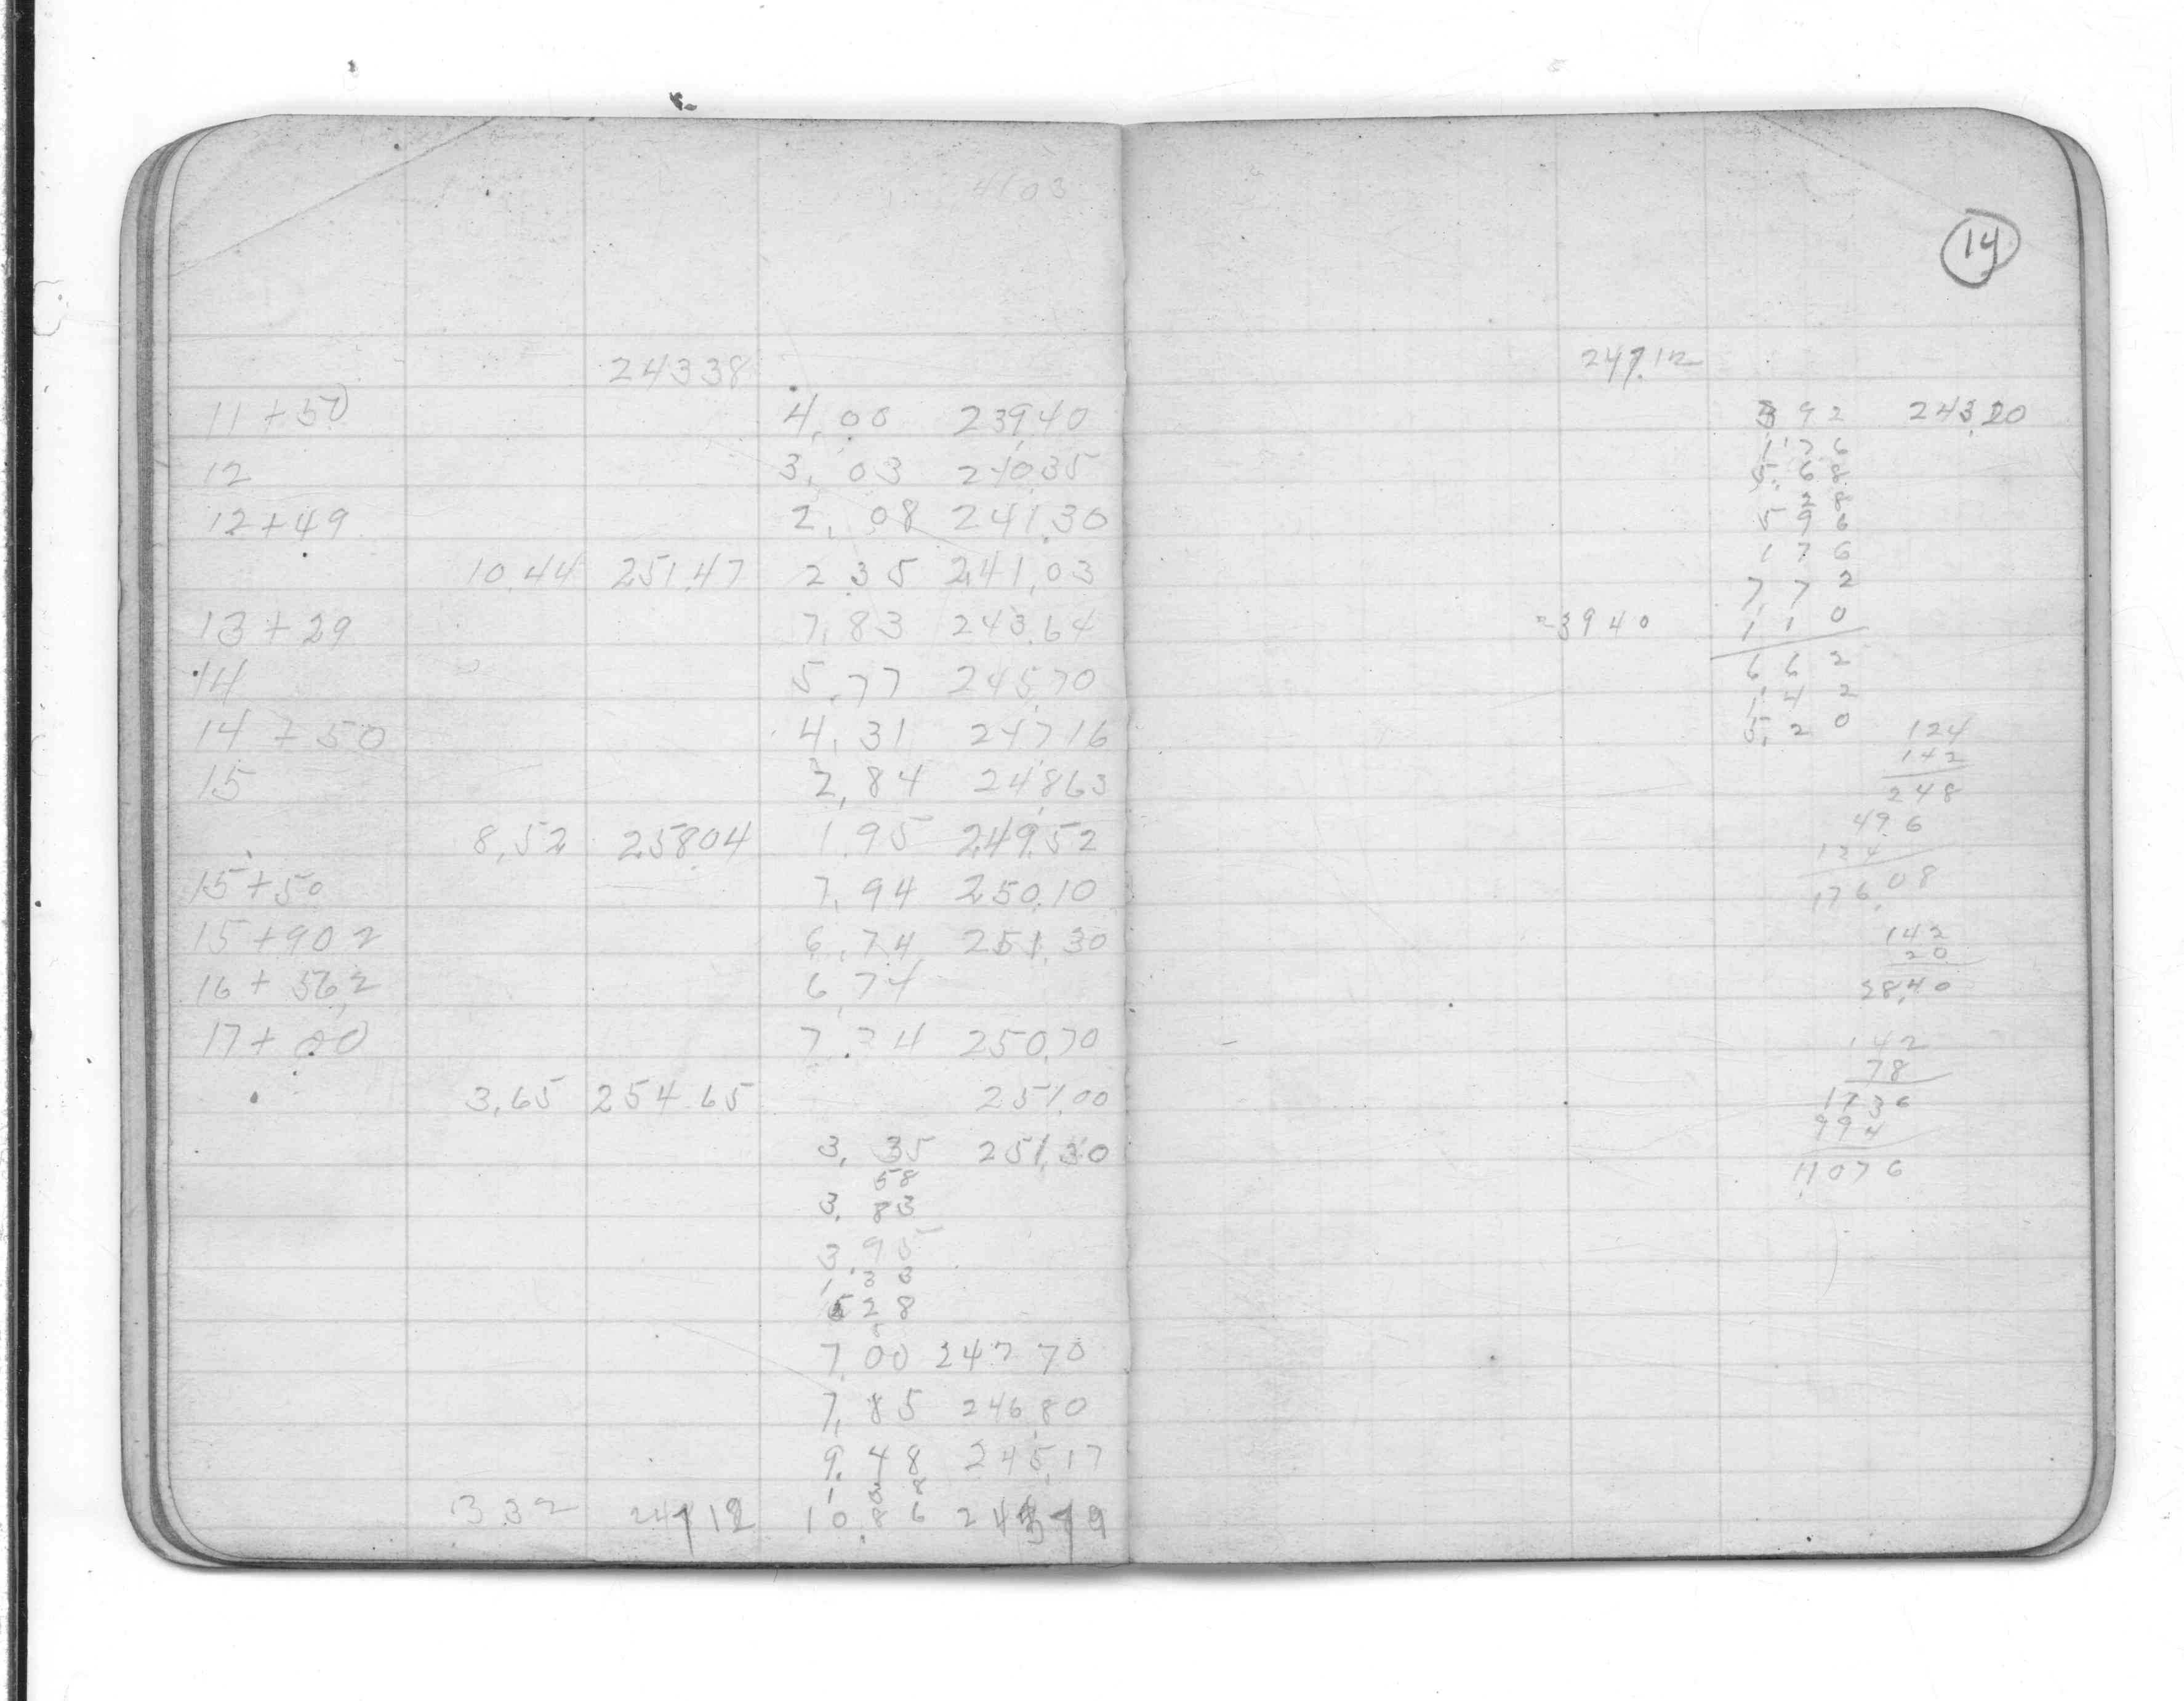 4103
24338
11+50 4,00 239,40
12 3,03 240,35
12+49 2,08 241,30
10,44 251,47 2 35 241,03
13+29 7,83 243,64
14 5,77 245,70
14+50 4,31 247,16
15 2,84 248,63
8,52 258,04 1,95 249,52
15+50 7,94 250,10
15+90 2 6,74 251,30
16+56,2 6,74
17+00 7,34 250,70
3,65 254,65 251,00
3,35 251,30
58
3,83
3,95
1 33
5 28
7,00 247 70
7,85 246,80
9,48 245,17
1 38
3 32 247 12 10,86 243 79
14
247.12
3 92 243.20
1 7 6
5. 6 8
2 8
5 9 6
1 7 6
7, 7 2
23940 1 1 0
6 6 2
1 4 2
5, 2 0
124
142
248
496
124
176,08
142
20
28,40
142
78
1136
994
11076